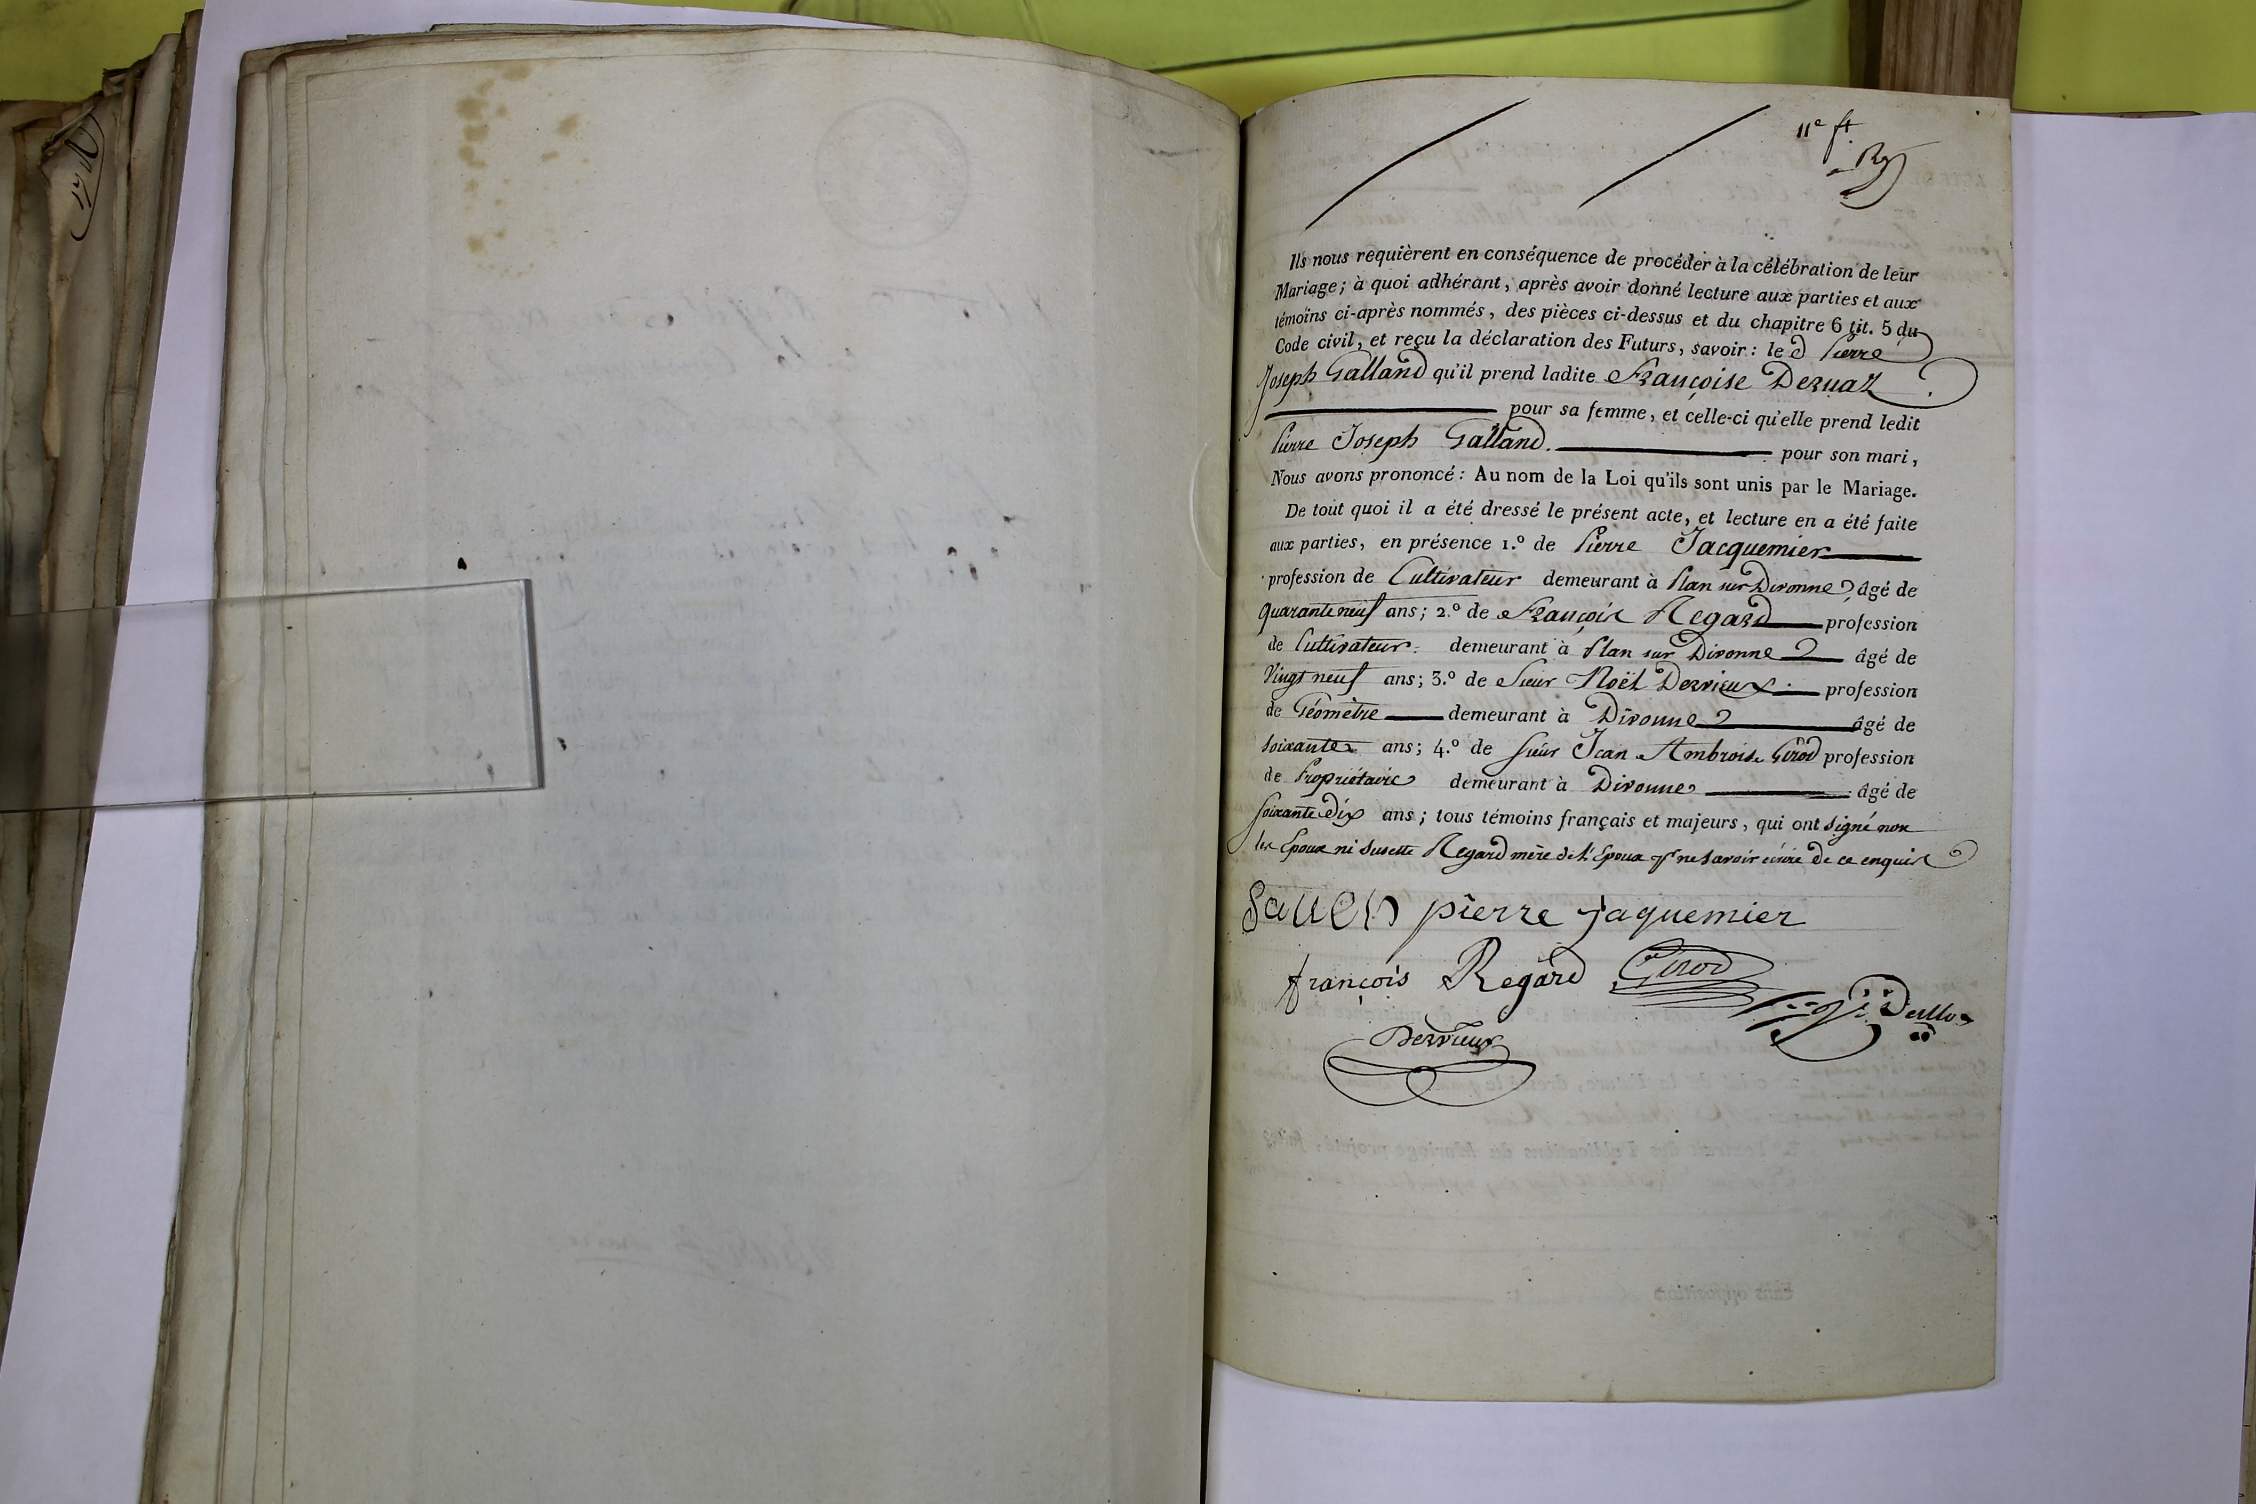 11e ft.
Ils nous requièrent en conséquence de procéder à la célébration de leur
Mariage; à quoi adhérant, après avoir donné lecture aux parties et aux
témoins ci-après nommés, des pièces ci-dessus et du chapitre 6 tit. 5 du
Code civil, et reçu la déclaration des Futurs, savoir: le d Pierre
Joseph Galland qu'il prend ladite Françoise Deruaz
pour sa femme, et celle-ci qu'elle prend ledit
Pierre Joseph Galland. pour son mari,
Nous avons prononcé: Au nom de la Loi qu'ils sont unis par le Mariage.
De tout quoi il a été dressé le présent acte, et lecture en a été faite
aux parties, en présence 1.° de Pierre Jacquemier
profession de Cultivateur demeurant à Plan sur Divonne, âgé de
quarante neuf ans; 2.° de François Regard profession
de Cultivateur demeurant à Plan sur Divonne âgé de
Vingt neuf ans; 3.° de Sieur Noël Dervieux profession
de Géomètre demeurant à Divonne âgé de
soixante ans; 4.° de Sieur Jean Ambroise Girod profession
de Propriétaire demeurant à Divonne âgé de
soixante dix ans; tous témoins français et majeurs, qui ont signé non
les Epoux ni Susette Regard mère de l'Epoux pr ne savoir écrire de ce enquis
pierre jaquemier
françois Regard Girod
Dervieux